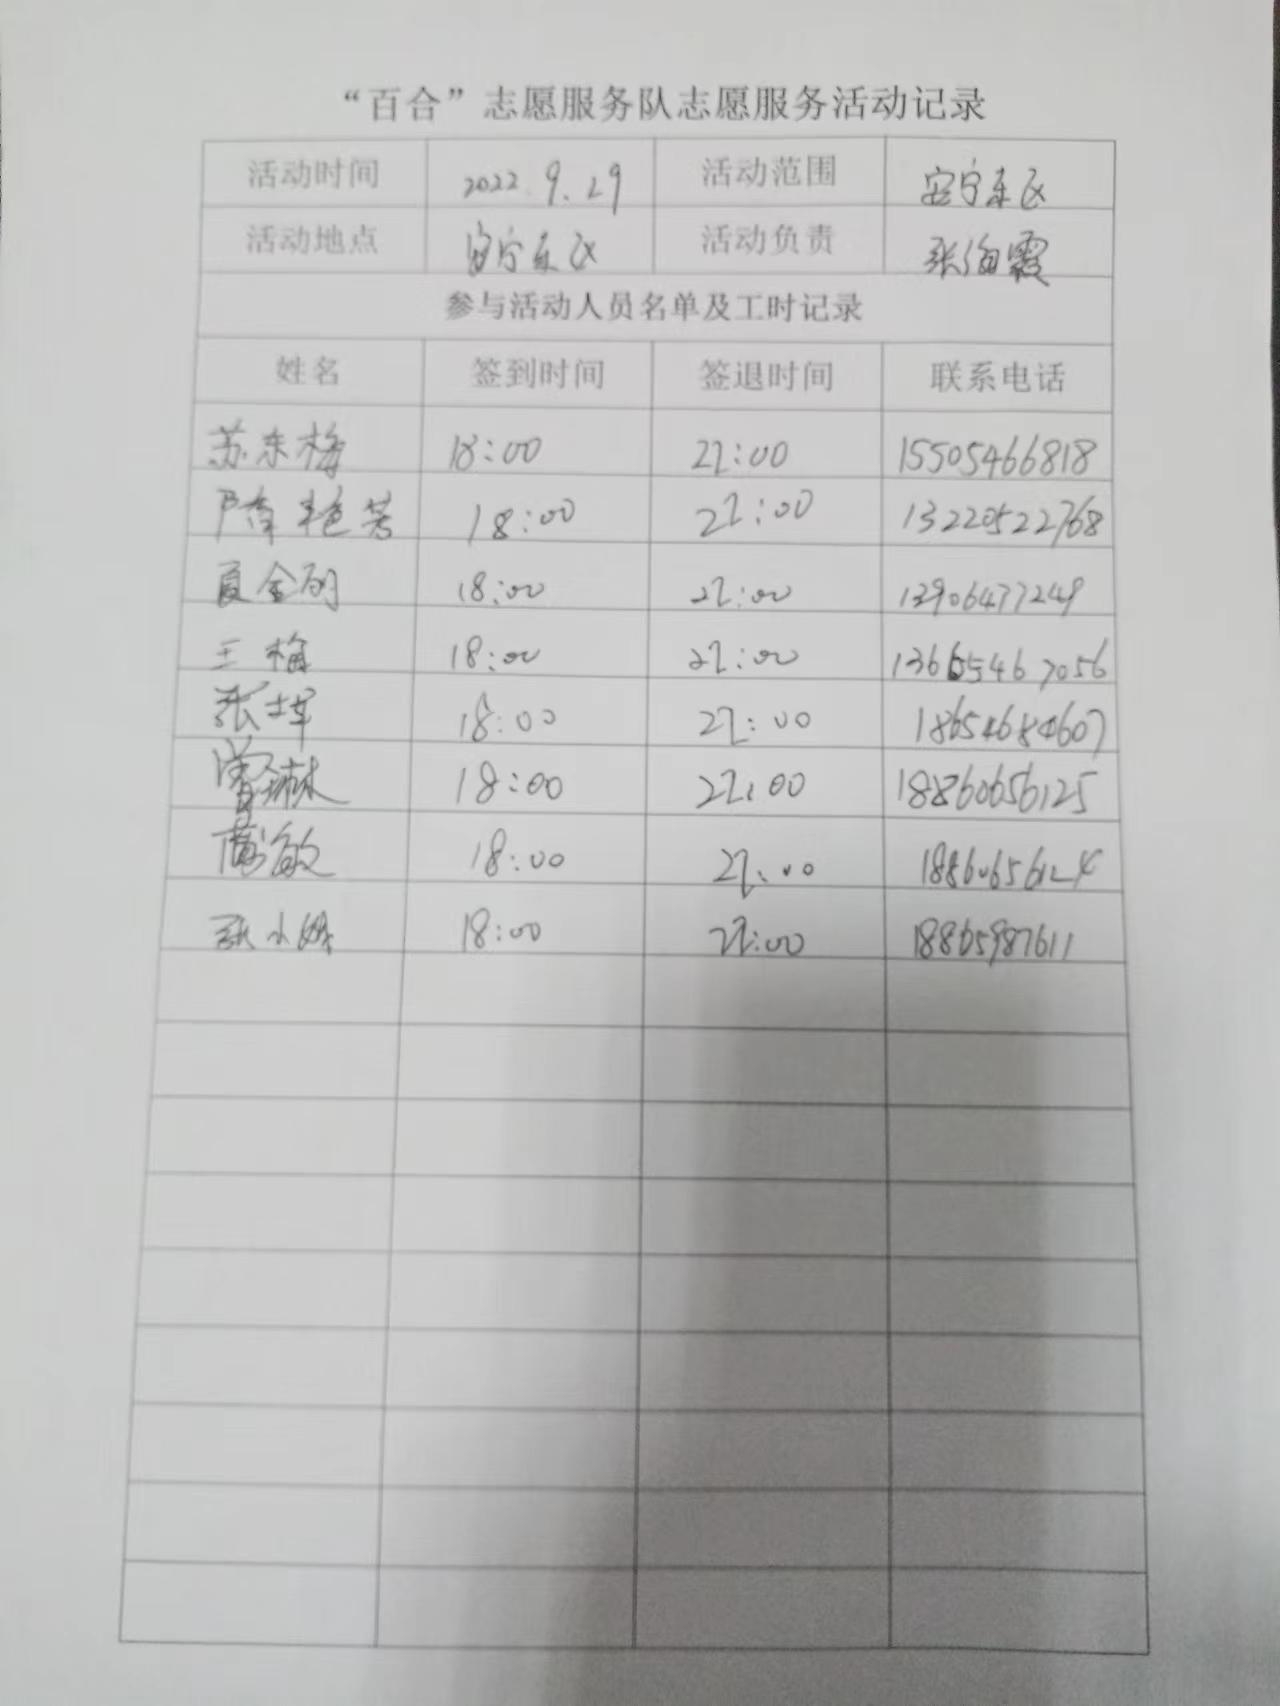 “百合”志愿服务队志愿服务活动记录
活动时间 2022.9.29 活动范围 安宁东区
活动地点 安宁东区 活动负责 张海霞
参与活动人员名单及工时记录
姓名 签到时间 签退时间 联系电话
苏东梅 18:00 21:00 15505466818
薛艳芳 18:00 21:00 13220522768
夏金明 18:00 21:00 13906477249
王梅 18:00 21:00 13665467056
张萍 18:00 21:00 18654684607
曾琳 18:00 21:00 18860656125
黄敏 18:00 21:00 18860656124
张小妹 18:00 21:00 18865987611